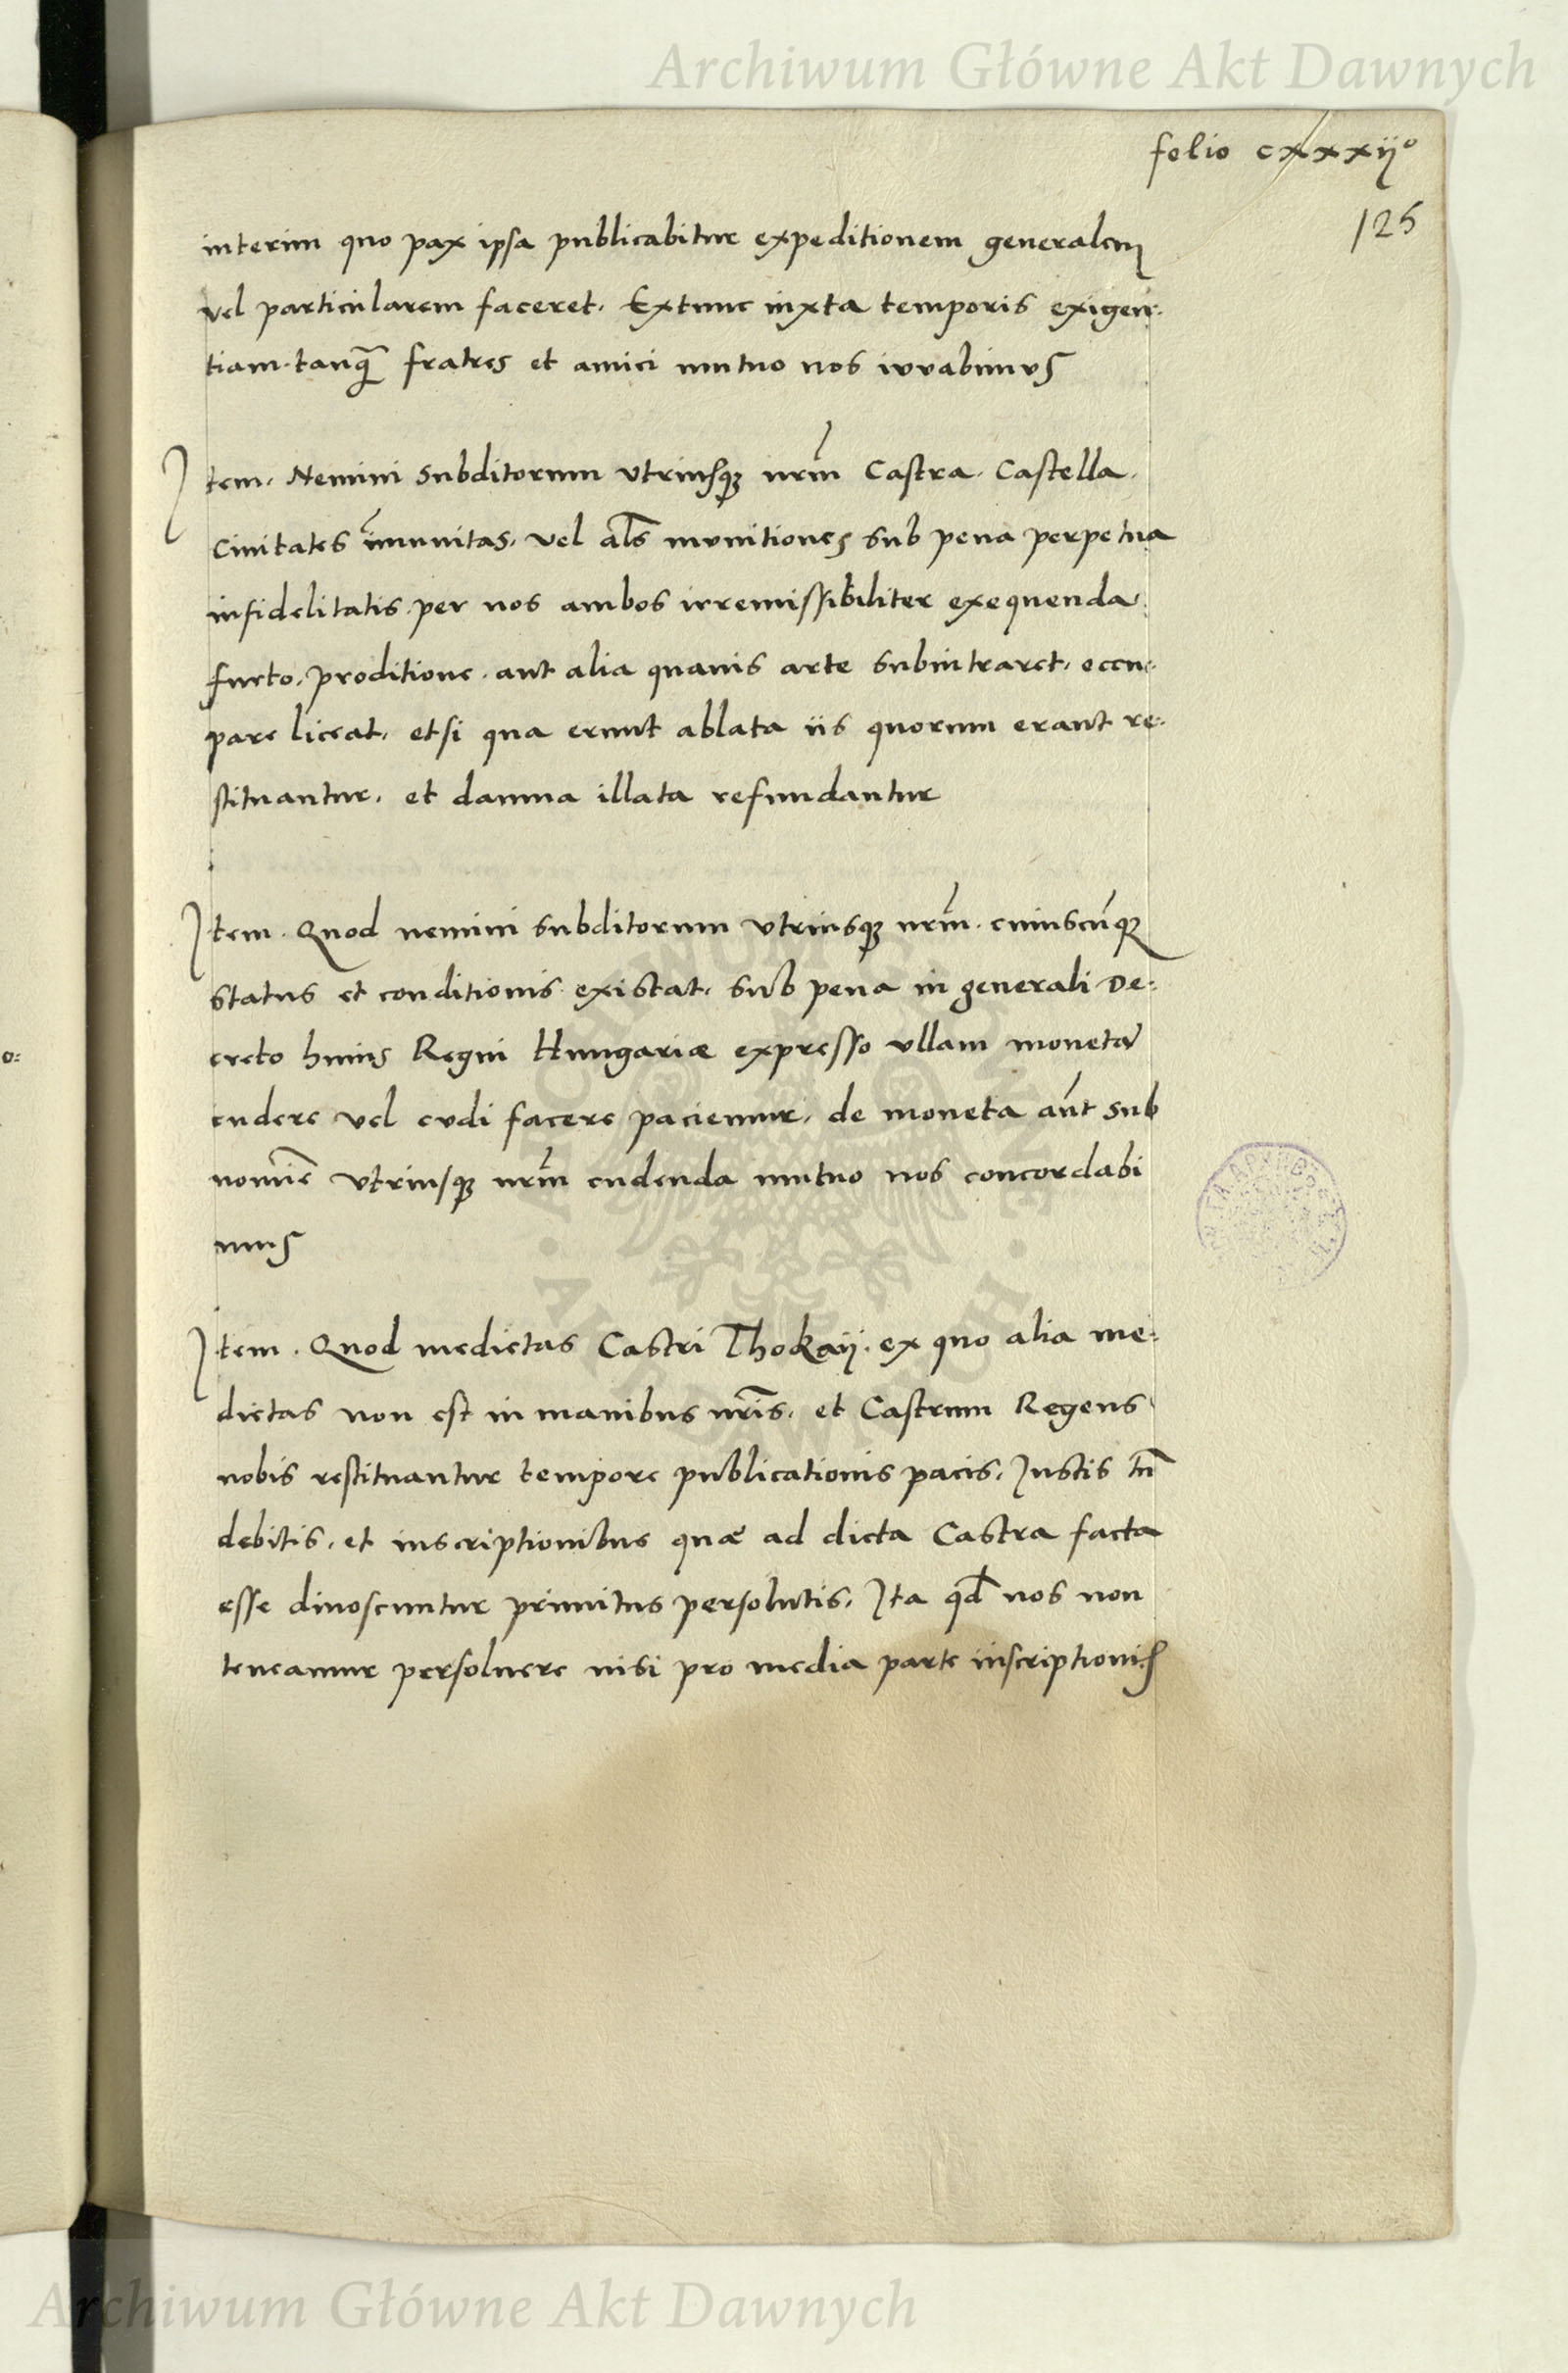 Archiwum Główne Akt Dawnych
felio cxxxijº
125
interim quo pax ipsa publicabitur expeditionem generalem
vel particularem faceret. Extunc iuxta temporis exigen:
tiam. tanq̃ fratres et amici mutuo nos iuvabimus
Item. Nemini subditorum utriusq; nr̃m Castra. Castella.
Civitates im̃unitas. vel al̃s munitiones sub pena perpetua
infidelitatis. per nos ambos irremissibiliter exequenda.
furto. proditione. aut alia quavis arte subintraret. occu:
pare liceat. etsi qua erunt ablata iis quorum erant re:
stituantur. et damna illata refundantur
Item. Quod nemini subditorum utriusq; nr̃m. cuiuscũq;
status et conditionis existat. sub pena in generali De:
creto huius Regni Hungariæ expresso ullam monetã
cudere vel cudi facere paciemur. de moneta aũt sub
nomĩe utriusq; nr̃m cudenda mutuo nos concordabi
mus
Item. Quod medietas Castri Thokaij. ex quo alia me:
dietas non est in manibus nr̃is. et Castrum Regens
nobis restituantur tempore publicationis pacis. Justis tñ
debitis. et inscriptionibus quæ ad dicta Castra facta
esse dinoscuntur primitus persolutis. Ita qd̃ nos non
teneamur persoluere nisi pro media parte inscriptionis
o:
Archiwum Główne Akt Dawnych